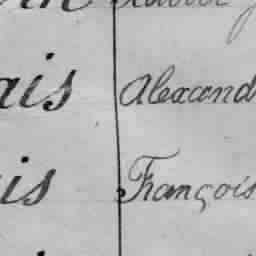 ais Alexand
is François